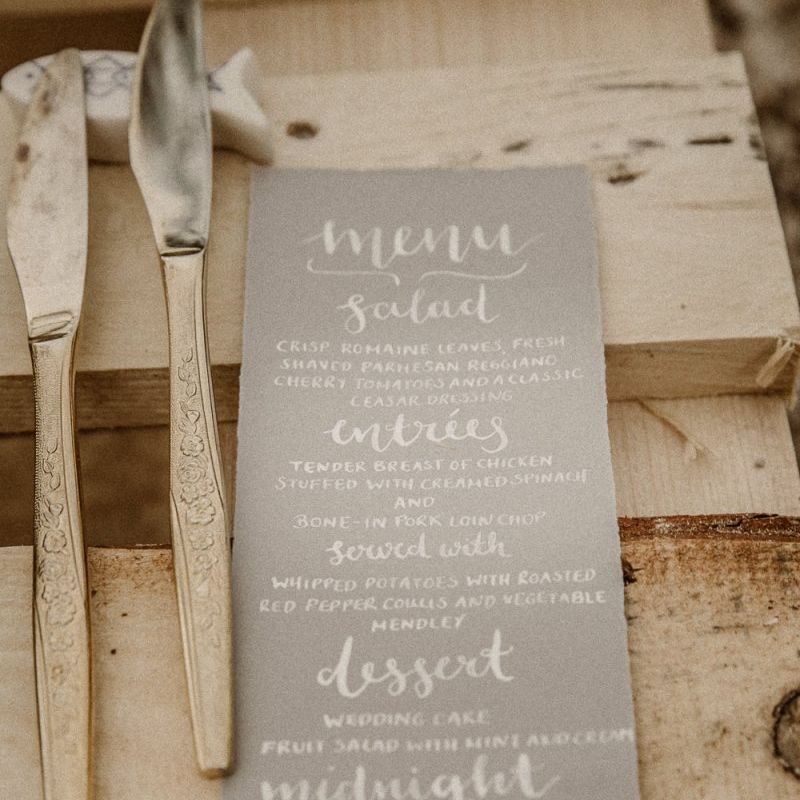 menu
salad
CRISP ROMAINE LEAVES, FRESH
SHAVED PARMESAN REGGIANO
CHERRY TOMATOES AND A CLASSIC
CEASAR DRESSING
entrées
TENDER BREAST OF CHICKEN
STUFFED WITH CREAMED SPINACH
AND
BONE-IN PORK LOIN CHOP
served with
WHIPPED POTATOES WITH ROASTED
RED PEPPER COULIS AND VEGETABLE
MENDLEY
dessert
WEDDING CAKE
FRUIT SALAD WITH MINT AND CREAM
midnight